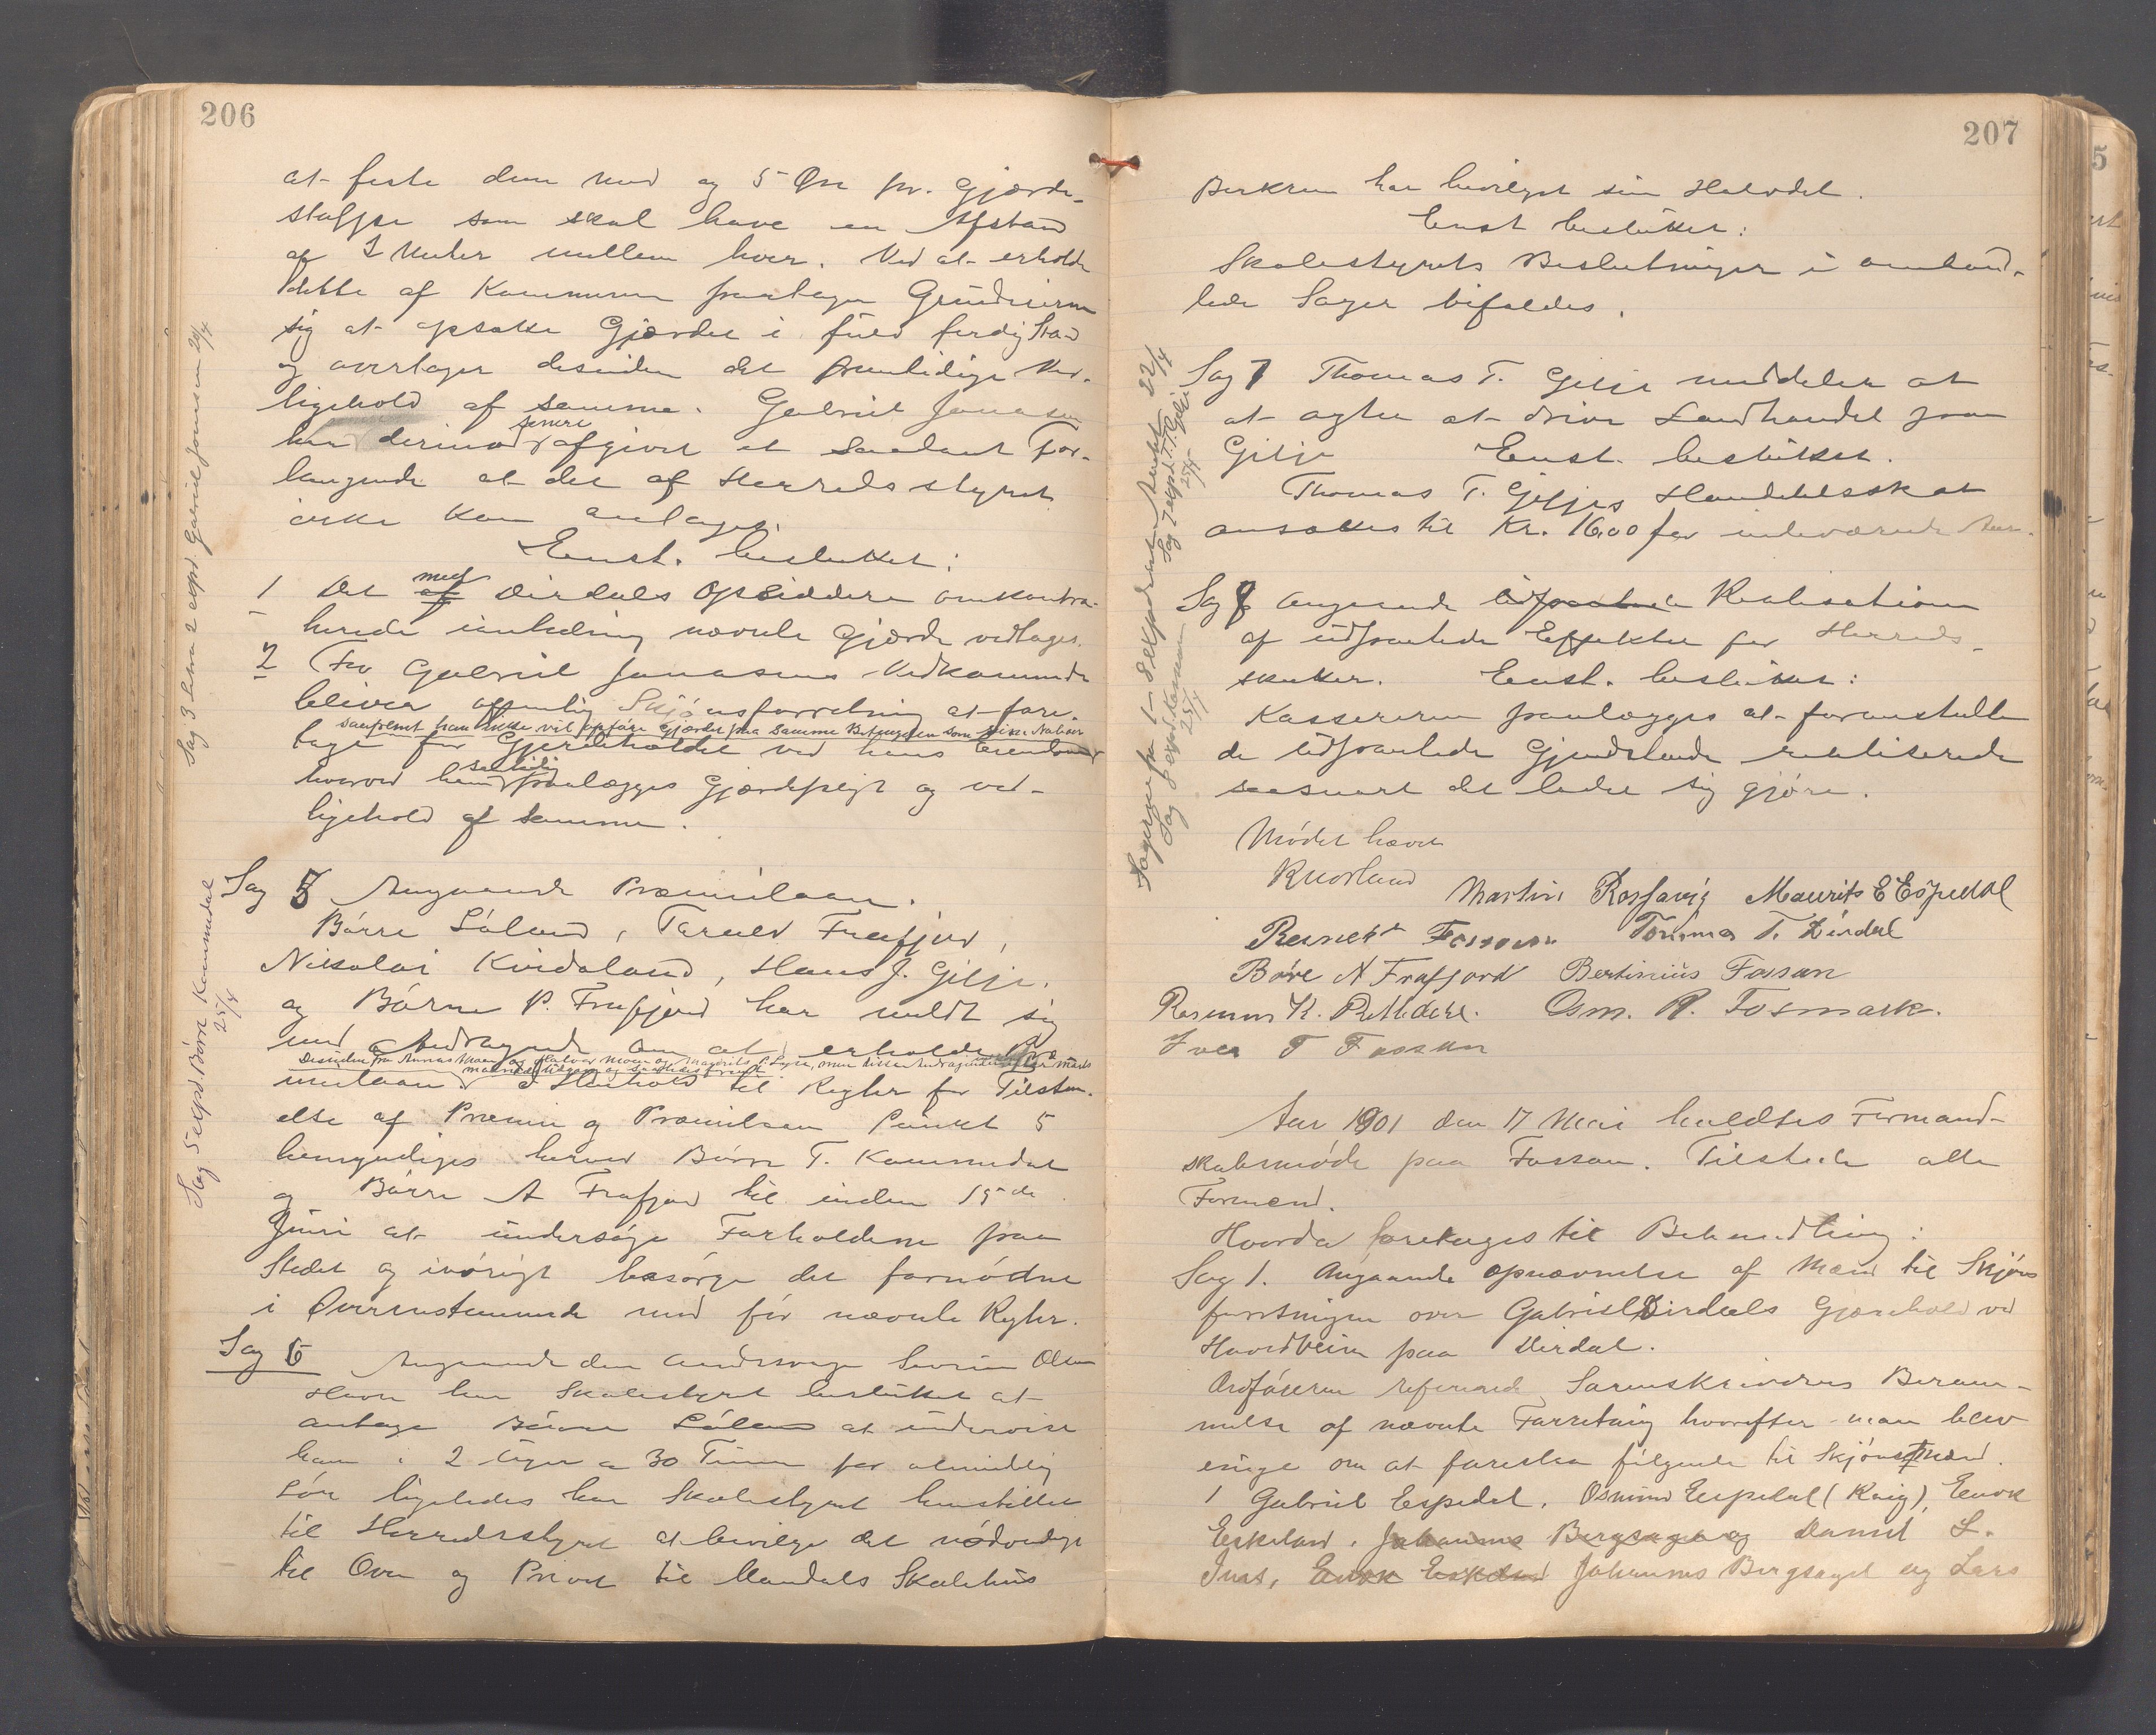 206
at feste dem med og 5 Øre pr. Gjærde-
stolpe som skal have en Afstand
af 2 Meter mellem hver. Ved at erholde
dette af Kommunen paatager Grundeierne
sig at opsætte Gjærdet i fuld færdig Stand
og overtager desuden det fremtidige Ved-
ligehold af samme. Gabriel Jonasen
har derimod senere afgivet et saadant For-
langende at det af Herredsstyret
ikke kan antages.
Enst. besluttet:
1 Det af med Dirdals Opsiddere omkontra-
herede i anledning nævnte Gjærde vedtages.
2 For Gabriel Jonasens Vedkommende
bliver offentlig Skjønsforretning at fore-
saafremt han ikke vil opføre Gjærdet paa samme Betingelser som sine Naboer
tage for Gjerdeholdet ved hans Eiendom
hvorved han paalægges Gjærdepligt og ved-
ligehold af samme.
Sag 5 Angaaende Præmielaan.
Børre Løland, Tarald Frafjord,
Nikolai Kvidaland, Hans J. Gilje,
og Børre P. Frafjord har meldt sig
med Andragende om at erholde Præ-
mielaan. I Henhold til Regler for Tilstaa-
else af Præmie og Præmielaan Punkt 5
bemyndiges herved Børre T. Kommedal
og Børre A Frafjord til inden 15de
Juni at undersøge Forholdene paa
Stedet og iøvrigt besørge det fornødne
i Overensstemmende med før nævnte Regler.
Sag 6 Angaaende den aandssvage Severin Olsen
Haven har Skolestyret besluttet at
antage Børre Løland at undervise
ham i 2 Uger a 30 Timer for almindelig
Løn ligeledes har Skolestyret henstillet
til Herredsstyret at bevilge det nødvendige
til Ovn og Privet til Maudals Skolehus
Sag 3 Litra 2 expd. Gabriel Jonsen 20/4
Sag 5 expd. Børre Kommedal
25/4
207
Bjerkrem har bevilget sin Halvdel.
Enst besluttet:
Skolestyrets Beslutninger i omhand-
lede Sager bifaldes.
Sag 7 Thomas T. Gilje meddeler at
at agter at drive Landhandel paa
Gilje Enst. besluttet.
Thomas T. Giljes Handelsskat
ansættes til Kr. 16,00 for indeværende Aar.
Sag 8 Angaaende Realisationen
af udpantede Effekter for Herreds-
skatter. Enst. besluttet:
Kassereren paalægges at foranstalte
de udpantede Gjenstande realiserede
saasnart det lader sig gjøre.
Mødet hævet
Martin Rossavig Maurits E Espedal
Fossan Tommas T. Dirdal
Børe A Frafjord Bertinius Fossan
Rasmus K. Osm. R. Fosmark.
Iver T Fossan
Aar 1901 den 17 Mai holdtes Formand-
skabsmøde paa Fossan. Tilstede alle
Formænd.
Hvorda foretages til Behandling:
Sag 1. Angaaende opnævnelse af Mænd til Skjøns
forretningen over Gabriel Dirdals Gjærehold ved
Hovedveien paa Dirdal.
Ordføreren refererede Sorenskriverens Beram-
melse af nævnte Forretning hvorefter man blev
enige om at foreslaa følgende til Skjønsmænd.
1 Gabriel Espedal, Osmund Espedal (Kaig), Enok
Eskeland, Johannes Bergsagel og Daniel L.
Tust, Enok Eskeland Johannes Bergsagel og Lars
25/4